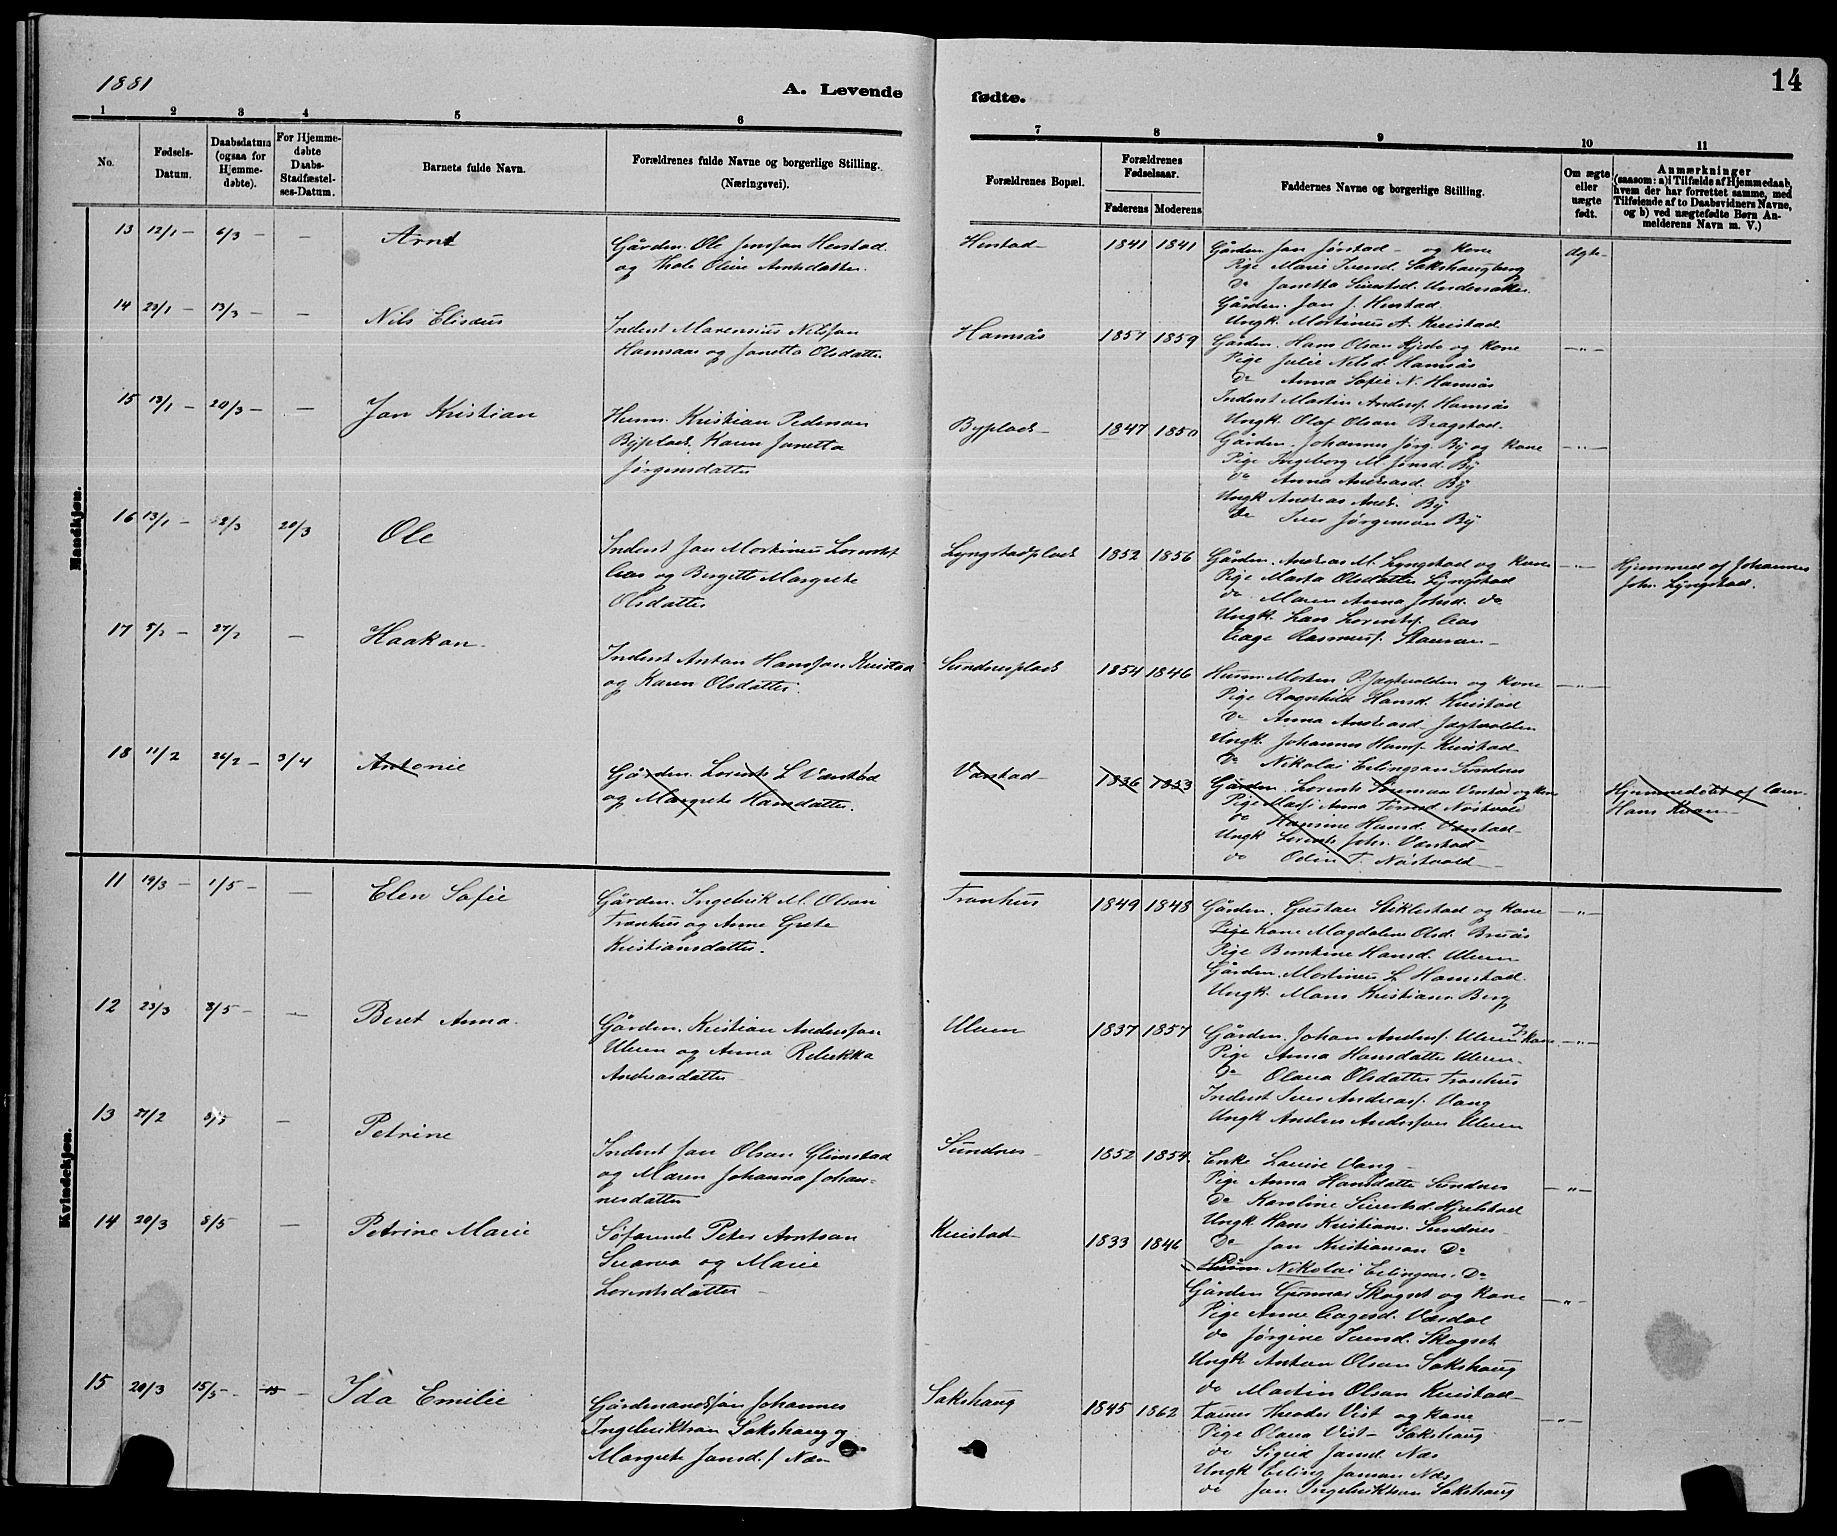 1881
A. Levende fødte.
14
1 2 3 4 5 6 7 8 9 10 11
No.
Fødsels-Datum.
Daabsdatum (ogsaa for Hjemme-døbte).
For Hjemme-døbte Daabs-Stadfæstel-ses-Datum.
Barnets fulde Navn.
Forældrenes fulde Navne og borgerlige Stilling. (Næringsvei).
Forældrenes Bopæl.
Forældrenes Fødselsaar.
Faderens Moderens
Faddernes Navne og borgerlige Stilling.
Om ægte eller uægte født.
Anmærkninger (saasom: a) i Tilfælde af Hjemmedaab, hvem der har forrettet samme, med Tilføiende af to Daabsvidners Navne, og b) ved uægtefødte Børn An-melderens Navn m. V.)
Mandkjøn.
13 12/1 – 6/3 – – Arnt
Gårdm. Ole Jonssøn Henstad
og Olive Arntsdatter.
Henstad – 1841 1841
Gårdm. Jon – og Kone
Pige Marie Iversd. Sakshaugberg
Do Janetta
Gårdm. Jon J. Henstad
Ungk. Mortinus A. Kvistad
ægte –
14 13/3 – – Nils Eliseus
Inderst Marensius Nilssøn
Hamsaas og Janetta Olsdatter
Hamsås 1857 1859
Gårdm. Hans Olsen og Kone
Pige Julie Nilsd. Hamsås
Do Anna Sofie N. Hamsås
Inderst Martin Anders. Hamsås
Ungk. Olaf Olsen Bragstad.
–"–
15 13/1 – 20/3 – – Jon Kristian
Husm. Kristian Pedersen
Byplads. Karen Janetta
Jørgensdatter
Byplads – 1847 1850
Gårdm. Johannes Jørg. By og Kone
Pige Ingeborg M. Jonsd. By
do Anna Andreasd. By
Ungk Andreas Andr. By
do Iver Jørgensen By
–"–
16 13/1 – 20/3 Ole
Inderst Jon Mortinus
Aas og Bergitte Margrete
Olsdatter
Lyngstadplads 1852 1856
Gårdm. Andreas M. Lyngstad og Kone
Pige Marta Olsdatter Lyngstad
do Maren Anna Johsd. do
Ungk Lars Lorents. Aas
Aage Rasmus.
–"–
Hjemmed af Johannes
Joh. Lyngstad.
17 – Haakon.
Inderst Anton Hanssøn Kvistad
og Karen Olsdatter.
Sundnesplads 1854 1846
Husm Morten P. Jægtvolden og Kone
Pige Ragnhild Hansd. Kvistad
Do Anna Andreasd. Jægtvolden
Ungk. Johannes Hans. Kvistad
Do Nikolai Erlingsen Sundnes
–"–
18 11/2 26/2 – 3/4 Antonie
Gårdm. Lorents L Vanstad
og Margrete Hansdatter.
Vanstad – 1836 1833
Gårdm. Lorents Vanstad og Kone
Pige Anna
do Hansine Hansd. Vanstad
Ungk Lorents Joh. Vanstad
do Odin T. Nøstvold
Hjemmedøbt af
Hans
Kvindekjøn.
11 19/3 – 1/5 – – Elen Sofie
Gårdm. Ingebrik M. Olsen
Tronhus og Anne Grete
Kristiansdatter.
Tronhus 1849 1848
Gårdm. Gustav Stiklestad og Kone
Pige Kone Magdalene Olsd. Bruås
Pige Hansd. Uleen
Gårdm. Mortinus L Hamstad
Ungk. Mons Kristians. Berg
–"–
12 23/3 8/5 – – Beret Anna.
Gårdm. Kristian Anderssøn
Uleen og Anna Rebekka
Andreasdatter
Uleen 1837 1857
Gårdm. Johan Anders. Uleen og Kone
Pige Anna Hansdatter Uleen
Do Olava Olsdatter Tronhus
Inderst Iver Andreas. Vang
Ungk Anders Anderssøn Uleen
–"–
13 27/2 – Petrine
Inderst Jon Olsen Glimstad
og Maren Johanna Johan-
nesdatter
Sundnes – 1852 1854
Enke Lovise Vang –
Pige Anna Hansdatter Sundnes
Do Karoline Sivertsd. Hjelstad
Ungk Hans Kristians. Sundnes
Do Jon Kristiansen Do
Husm Nikolai Erlingsen. Do
–"–
14 20/3 8/5 – Petrine Marie
Søfarende Peter Arntsen
Svarva og Marie
Lorentsdatter –
Kvistad 1833 1846
Gårdm Gunnar Skogset og Kone
Pige Anne Aagesd. Værdal
do Jørgine Iversd. Skogset
Ungk Anton Olsen Sakshaug
do Martin Olsen Kvistad –
–"–
15 20/3 15/5 – 15 – Ida Emilie
Gårdmandssøn Johannes
Ingebriktsen Sakshaug og
Margrete Jonsd. f Næs
Sakshaug 1845 1862
Theodor Vist og Kone
Pige Olava Vist – Sakshaug
do Sigrid Jonsd. Næs
Ungk Erling Jonsen Næs
do Jon Ingebriktsen Sakshaug
–"–